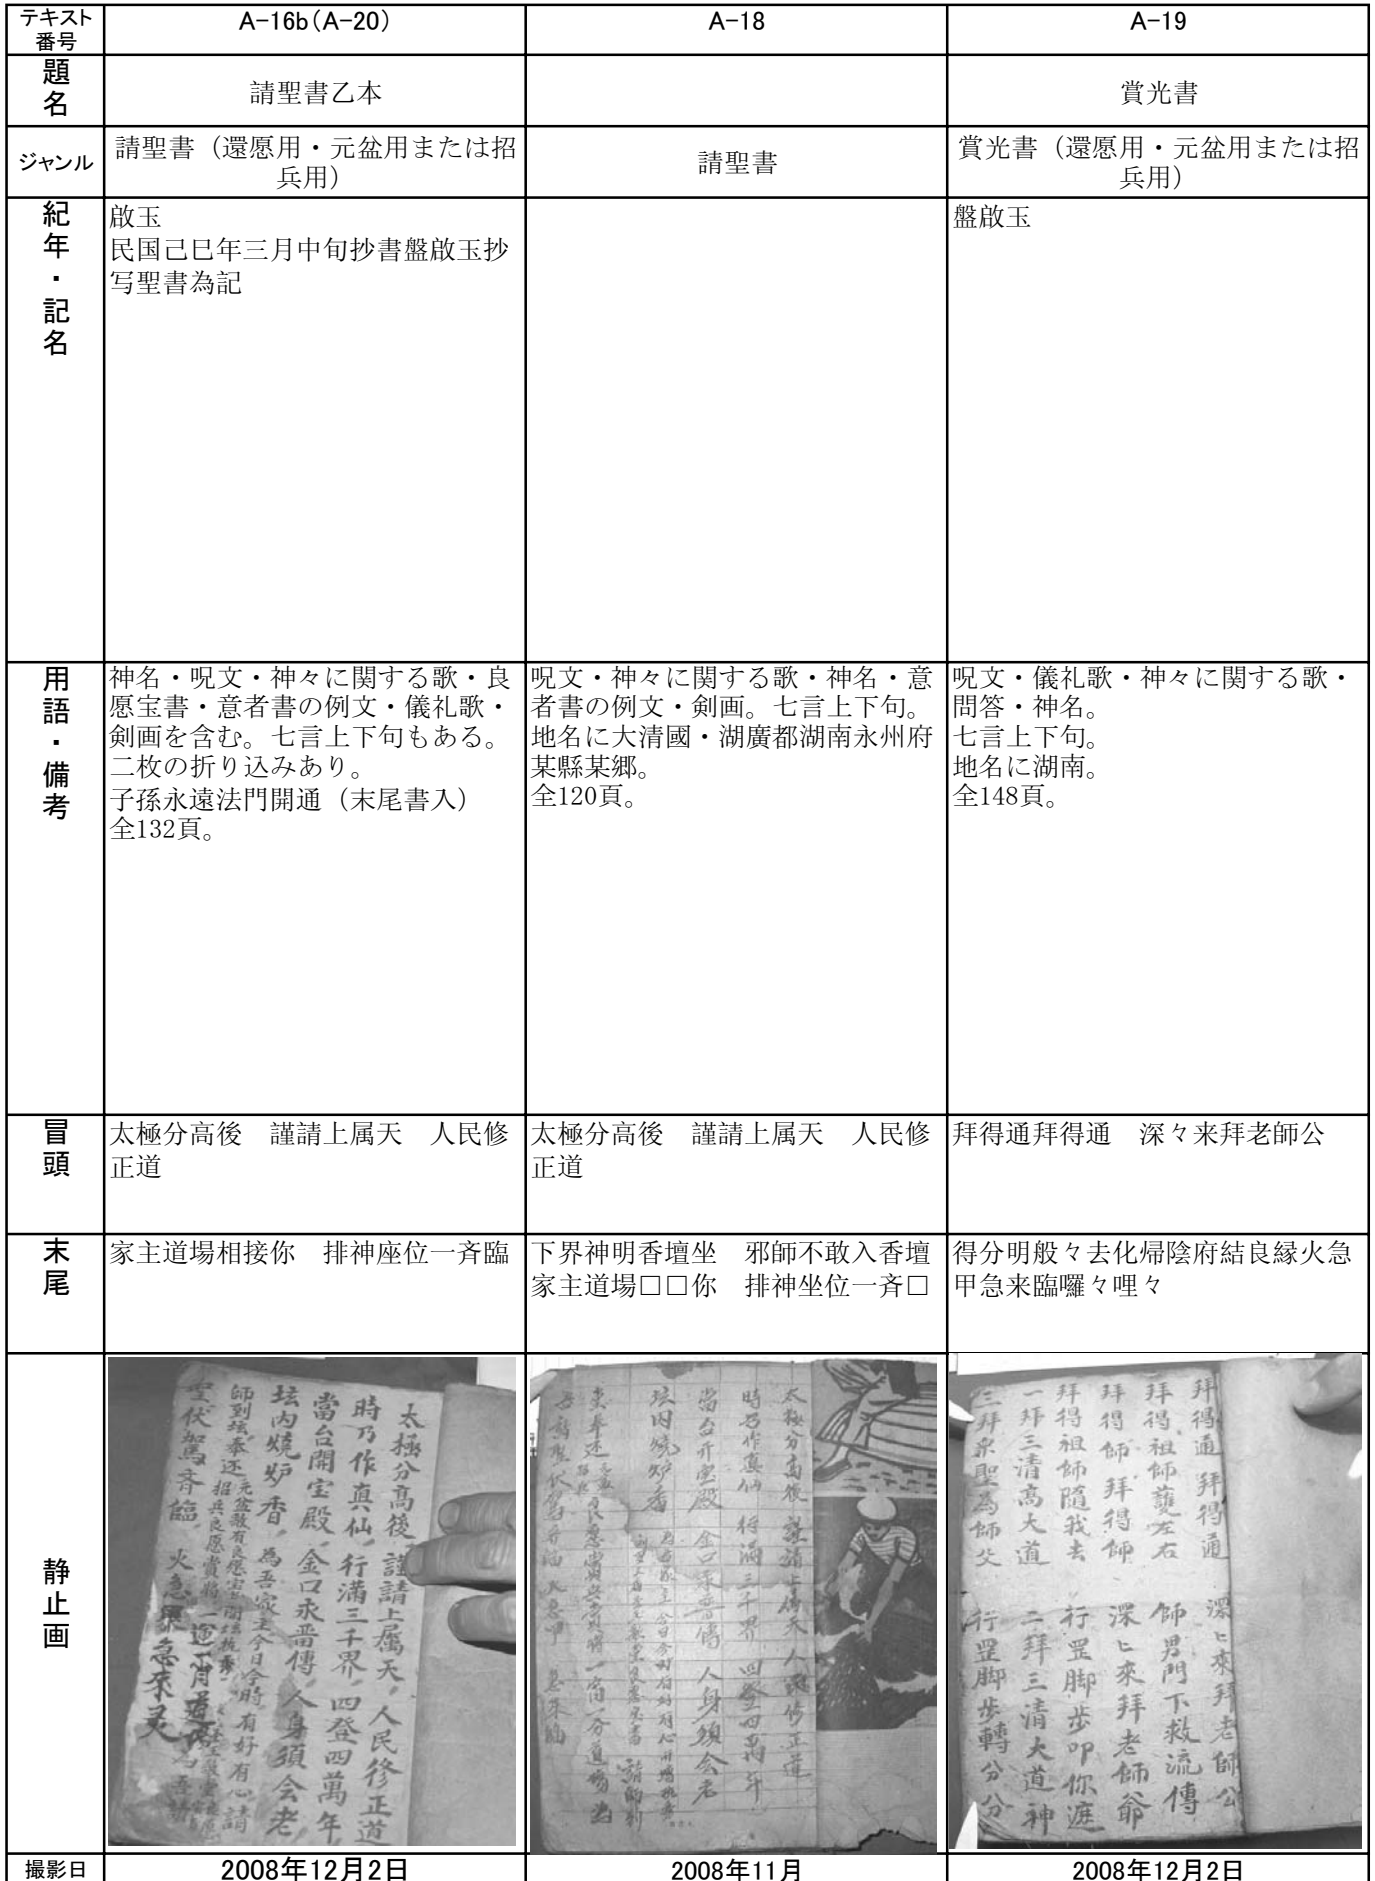 テキスト番号
A-16b(A-20)
A-18
A-19
題名
請聖書乙本
賞光書
ジャンル
請聖書（還愿用・元盆用または招
兵用）
請聖書
賞光書（還愿用・元盆用または招
兵用）
紀年・記名
啟玉
民国己巳年三月中旬抄書盤啟玉抄
写聖書為記
盤啟玉
用語・備考
神名・呪文・神々に関する歌・良
愿宝書・意者書の例文・儀礼歌・
剣画を含む。七言上下句もある。
二枚の折り込みあり。
子孫永遠法門開通（末尾書入）
全132頁。
呪文・神々に関する歌・神名・意
者書の例文・剣画。七言上下句。
地名に大清國・湖廣都湖南永州府
某縣某郷。
全120頁。
呪文・儀礼歌・神々に関する歌・
問答・神名。
七言上下句。
地名に湖南。
全148頁。
冒頭
太極分高後　謹請上属天　人民修
正道
太極分高後　謹請上属天　人民修
正道
拜得通拜得通　深々来拜老師公
末尾
家主道場相接你　排神座位一斉臨
下界神明香壇坐　邪師不敢入香壇
家主道場□□你　排神坐位一斉□
得分明般々去化帰陰府結良縁火急
甲急来臨囉々哩々
静止画
太極分高後 謹請上属天 人民修正道
時乃作真仙 行滿三千界 四登四萬年
當台開宝殿 金口永畨傳 人身須会老
坛内燒炉香 為吾家主今日今時有好有心請
太極分高後 謹請上属天 人民修正道
時乃作真仙 行滿三千界 四登四萬年
當台開宝殿 金口永畨傳 人身須会老
坛内燒炉香
拜得通 拜得通 深匕來拜老師公
拜得祖師護左右 師男門下救流傳
拜得師 拜得師 深匕來拜老師爺
拜得祖師隨我去 行罡脚步叩你
一拜三清高大道 二拜三清大道神
三拜衆聖為師父 行罡脚步轉分分
撮影日
2008年12月2日
2008年11月
2008年12月2日